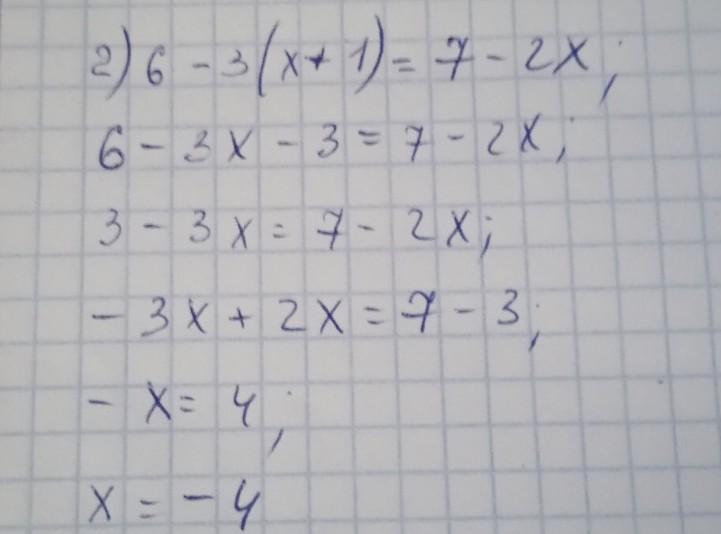 2) 6 - 3(x + 1) = 7 - 2x;
6 - 3x - 3 = 7 - 2x;
3 - 3x = 7 - 2x;
- 3x + 2x = 7 - 3;
- x = 4;
x = - 4